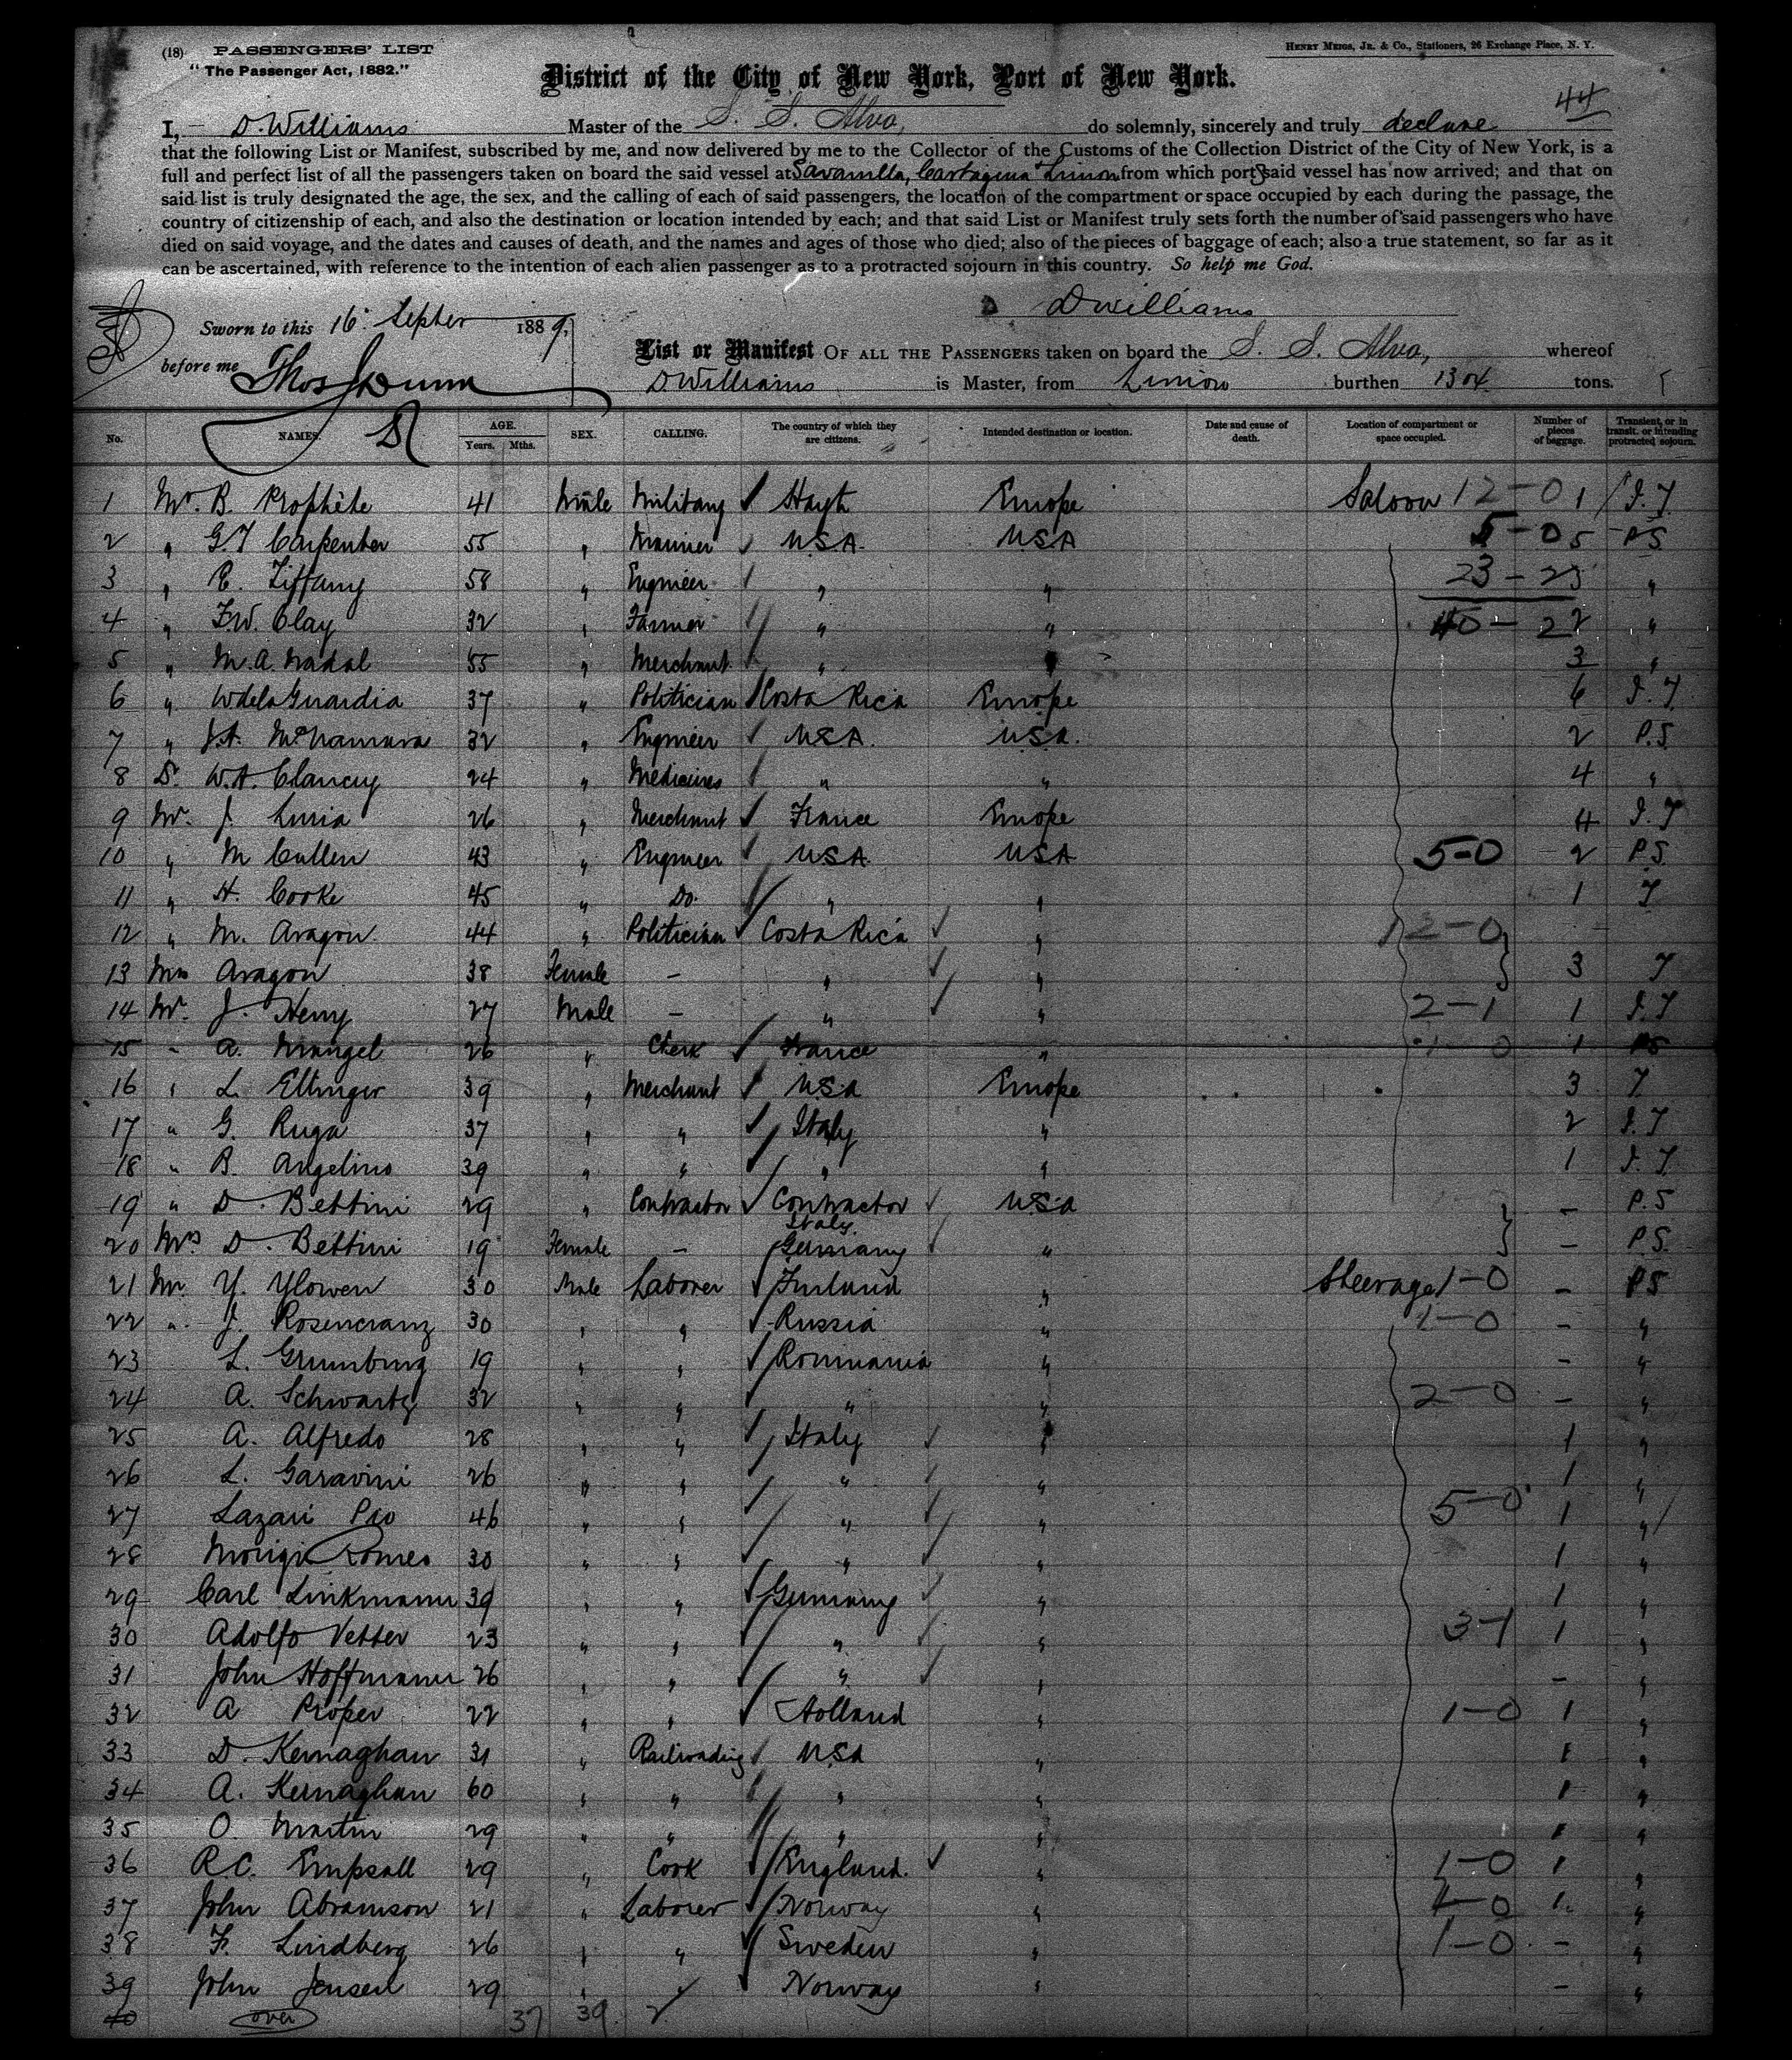 (18) PASSENGERS' LIST
HENRY MEIGS, JR. & CO., Stationers, 26 Exchange Place, N. Y.
"The Passenger Act, 1882."
District of the City of New York, Port of New York.
44
I, D. Williams Master of the S. S. Alvo, do solemnly, sincerely and truly declare
that the following List or Manifest, subscribed by me, and now delivered by me to the Collector of the Customs of the Collection District of the City of New York, is a
full and perfect list of all the passengers taken on board the said vessel at Savanilla, Cartagena Limon from which ports said vessel has now arrived; and that on
said list is truly designated the age, the sex, and the calling of each of said passengers, the location of the compartment or space occupied by each during the passage, the
country of citizenship of each, and also the destination or location intended by each; and that said List or Manifest truly sets forth the number of said passengers who have
died on said voyage, and the dates and causes of death, and the names and ages of those who died; also of the pieces of baggage of each; also a true statement, so far as it
can be ascertained, with reference to the intention of each alien passenger as to a protracted sojourn in this country. So help me God.
D Williams
Sworn to this 16 Septber 1889,
before me Thos Dunn
List or Manifest OF ALL THE PASSENGERS taken on board the S. S. Alvo, whereof
D Williams is Master, from Limon burthen 1304 tons.
No. NAMES. AGE. Years. Mths. SEX. CALLING. The country of which they are citizens. Intended destination or location. Date and cause of death. Location of compartment or space occupied. Number of pieces of baggage. Transient, or in transit, or intending protracted sojourn.
1 Mr. B. Prophète 41 Male Military Hayti Europe Saloon 12-0 1 I. T.
2 " G.T Carpenter 55 " Mariner U.S.A. USA 5-0 5 PS
3 " C. Tiffany 58 " Engineer " " 23-23 "
4 " F.W. Clay 32 " Farmer " " 40-22 "
5 " M.A. Nadal 55 " Merchant " " 3 "
6 " W de la Guardia 37 " Politician Costa Rica Europe 6 I. T.
7 " J.A. McNamara 32 " Engineer USA. USA. 2 P.S.
8 Dr. W.A. Clancy 24 " Medicines " " 4 "
9 Mr. J. Luria 26 " Merchant France Europe 4 I. T
10 " M Cullen 43 " Engineer USA USA 5-0 2 P.S.
11 " H. Cooke 45 " Do. " " 1 T
12 " M. Aragon. 44 " Politician Costa Rica " 12-0
13 Mrs Aragon 38 Female - " " 3 T
14 Mr. J. Henry 27 Male - " " 2-1 1 I. T
15 " A. Mangel 26 " Clerk France " 1-0 1 PS
16 " L. Ettinger 39 " Merchant USA Europe 3 T.
17 " G. Ruga 37 " " Italy " 2 I. T
18 " B. Angelino 39 " " " " 1 I. T.
19 " D. Bettini 29 " Contractor Contractor USA - P.S
Italy
20 Mrs D. Bettini 19 Female - Germany " - P.S.
21 Mr. Y. Ylowen 30 Male Laborer Finland " Steerage 1-0 - PS
22 " J. Rosencranz 30 " " Russia " 1-0 - "
23 L. Grumburg 19 " " Roumania " - "
24 A. Schwartz 32 " " " " 2-0 - "
25 A. Alfredo 28 " " Italy " 1 "
26 L. Garavini 26 " " " " 1 "
27 Lazari Pio 46 " " " " 5-0 1 "
28 Morigi Romeo 30 " " " " 1 "
29 Carl Linkmann 39 " " Germany " 1 "
30 Adolfo Vetter 23 " " " " 3-1 1 "
31 John Hoffmann 26 " " " " - "
32 A Proper 22 " " Holland " 1-0 1 "
33 D. Kernaghan 31 " Railroading USA " 1 "
34 A. Kernaghan 60 " " " " 1 "
35 O. Martin 29 " " " " 1 "
36 R.C. Empsall 29 " Cook England. " 1-0 1 "
37 John Abramson 21 " Laborer Norway " 1. "
38 F. Lindberg 26 " " Sweden " 1-0 - "
39 John Jensen 29 " " Norway " - "
40 over 37 39 2